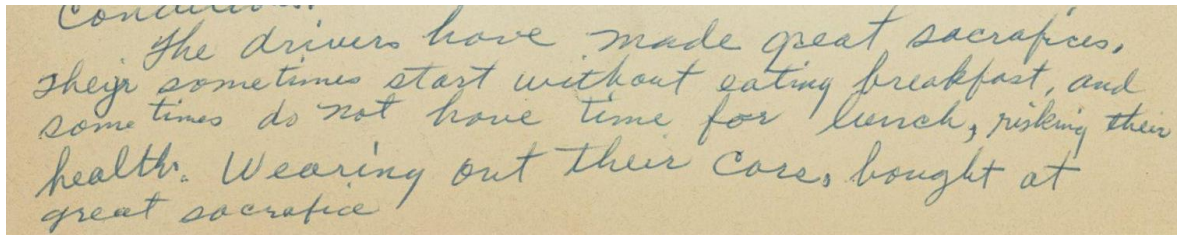 Conditions.
The drivers have made great sacrafices.
Theyr sometimes start without eating breakfast, and
some times do not have time for lunch, risking their
health. Wearing out their cars, bought at
great sacrafice